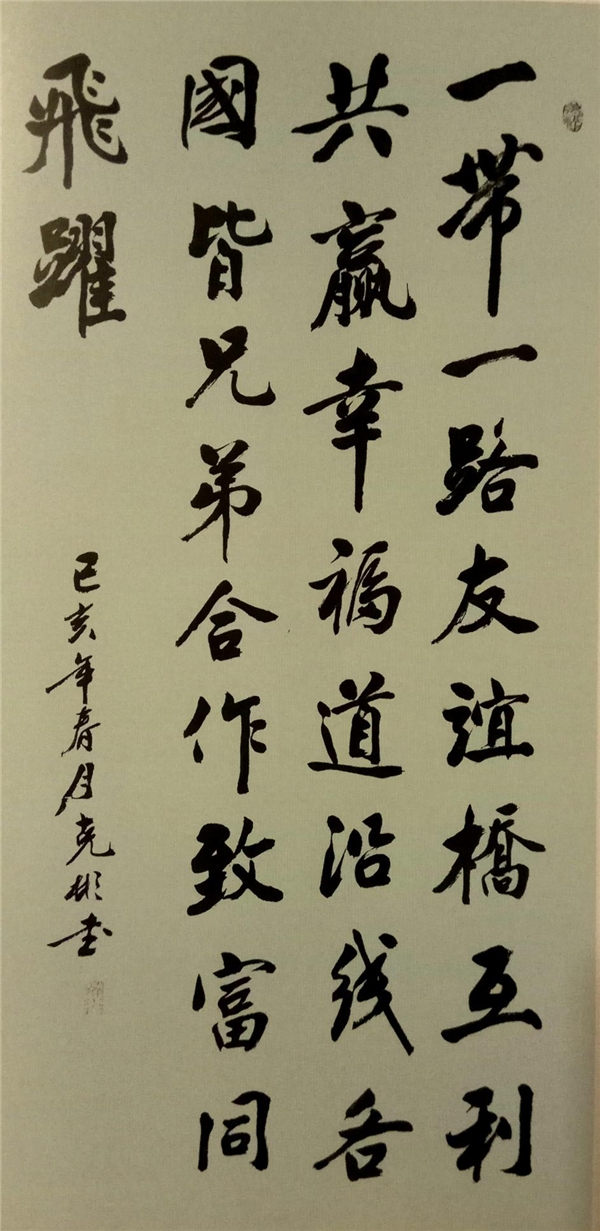 一帶一路友誼橋互利
共贏幸福道沿线各
國皆兄弟合作致富同
飛躍
己亥年春月克彬书